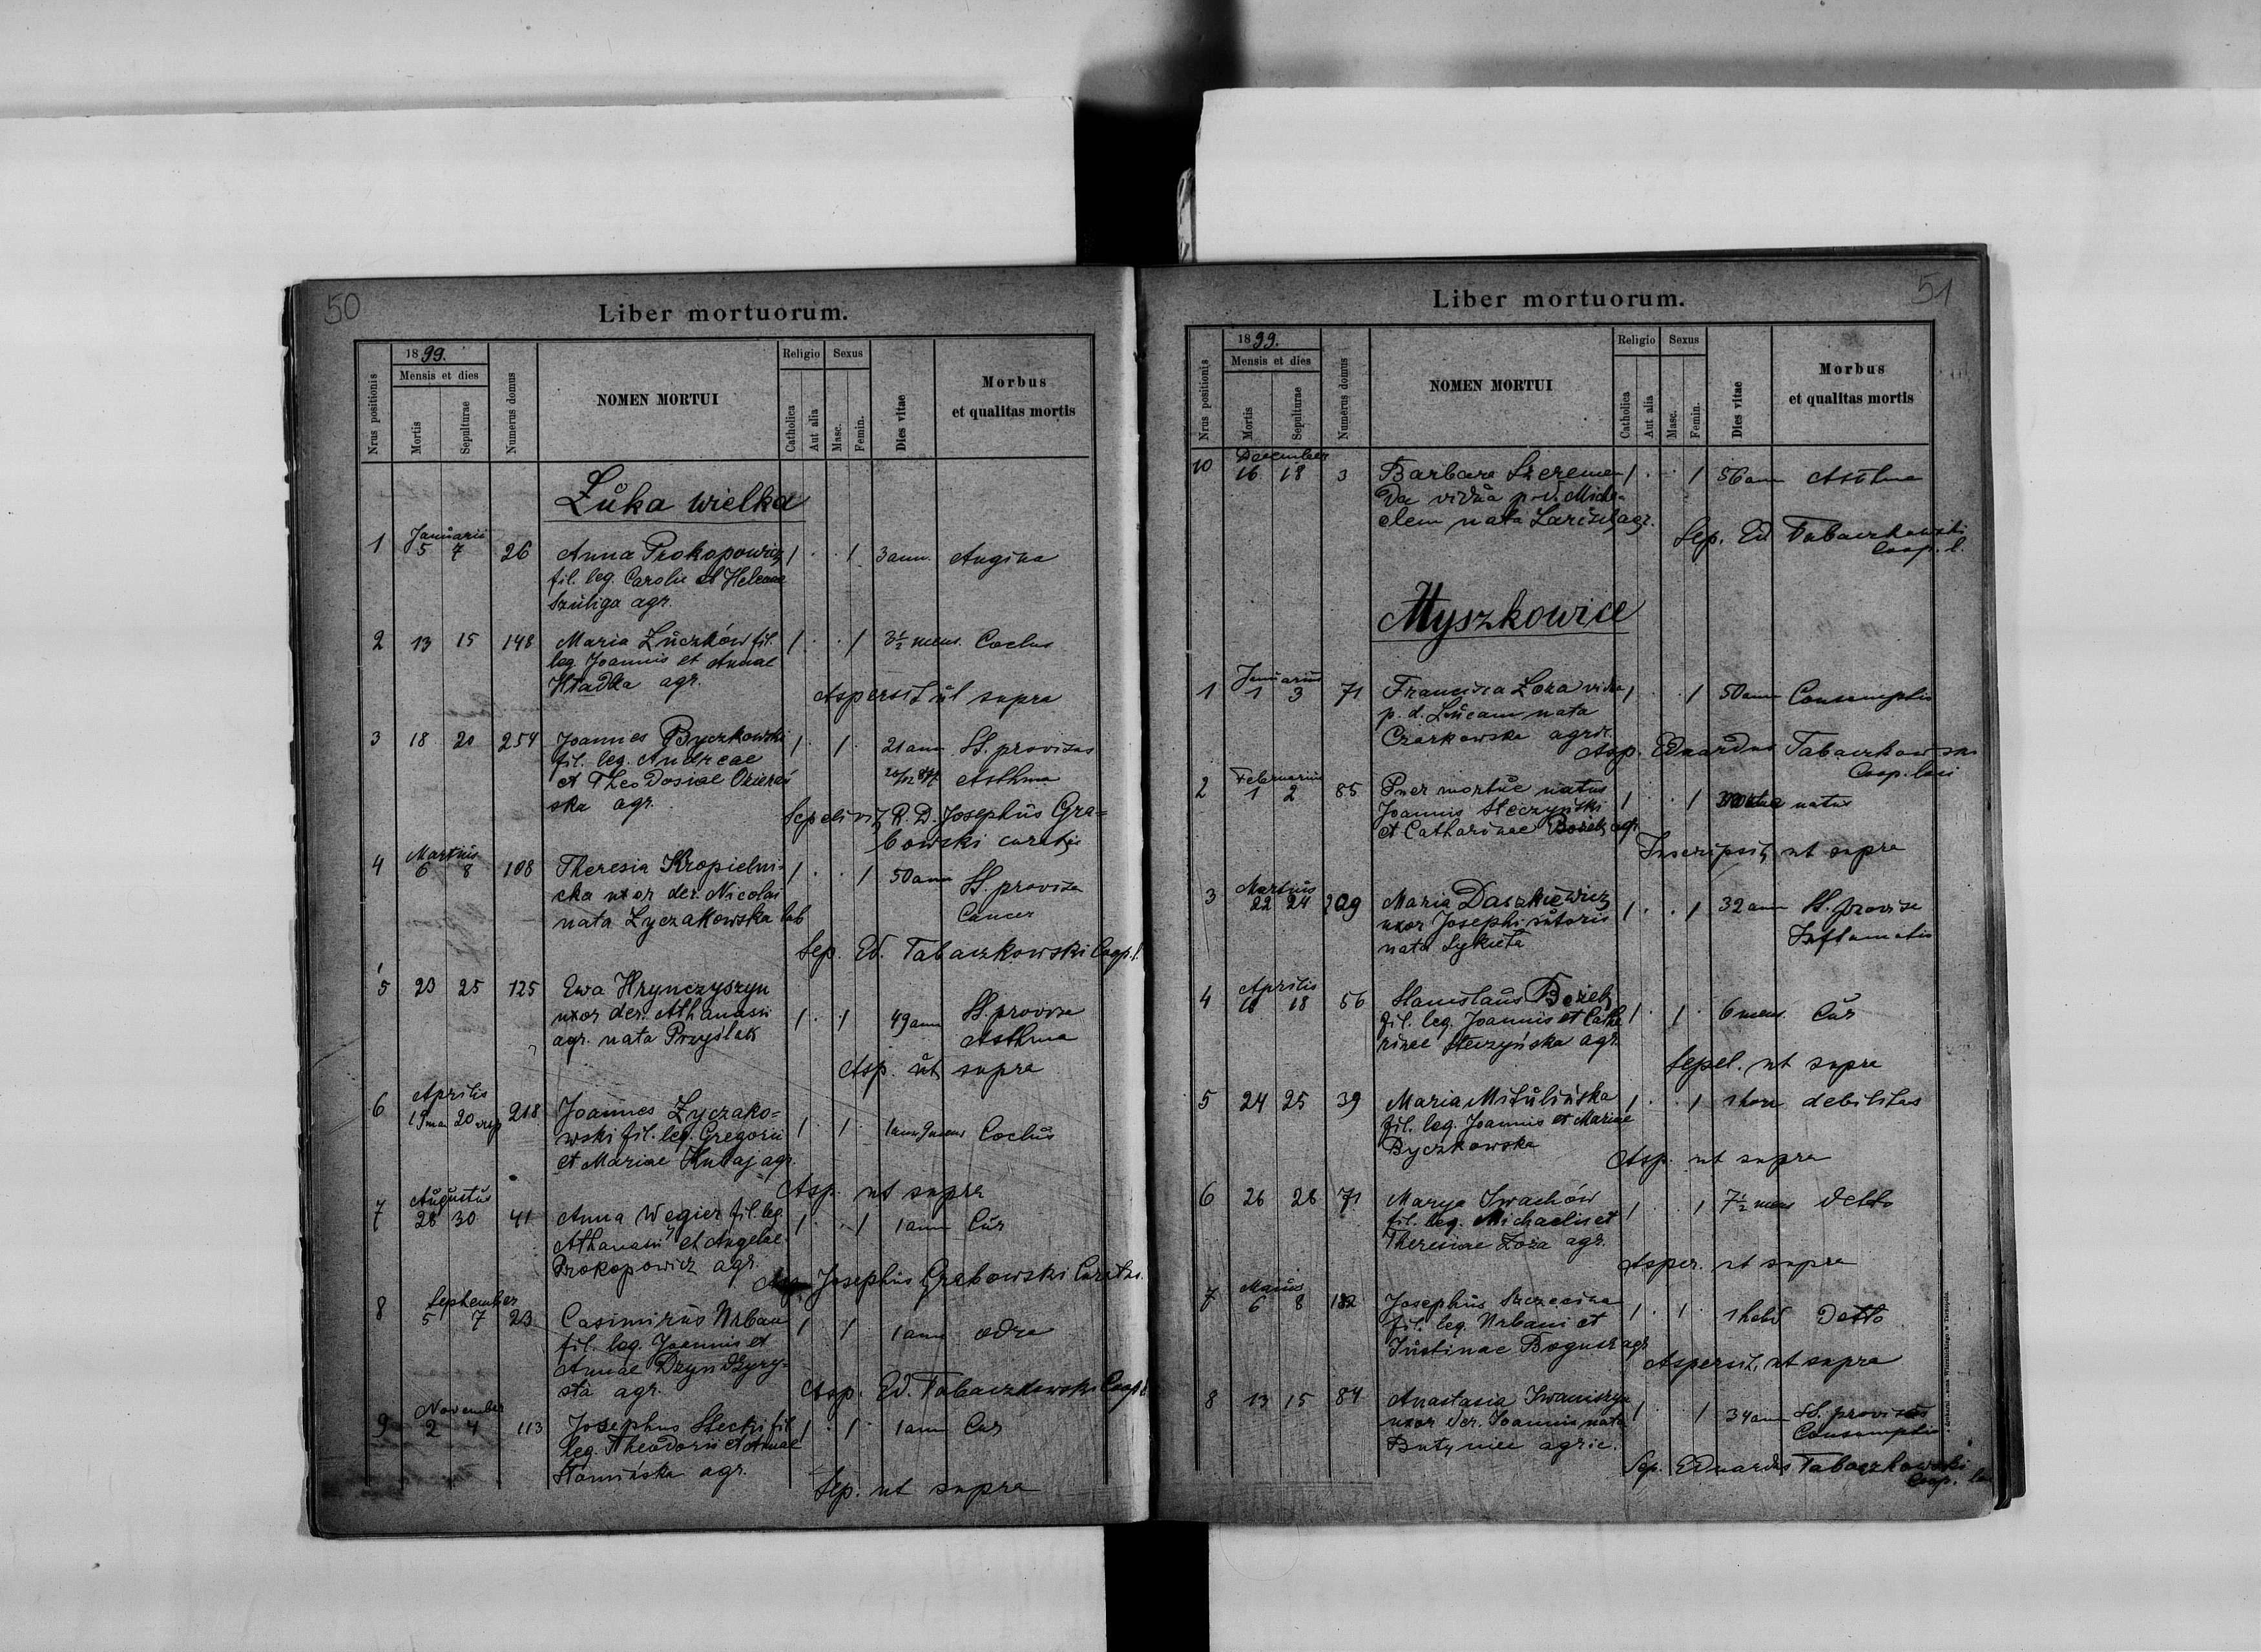 50
Liber mortuorum.
Nrus positionis
1899.
Mensis et dies
Mortis
Sepulturae
Numerus domus
NOMEN MORTUI
Religio
Catholica
Aut alia
Sexus
Masc.
Femin.
Dies vitae
Morbus
et qualitas mortis
Łuka wielka
Januarii
1 5 7 26 Anna Prokopowicz 1 · · 1 3 ann. Angina
fil. leg. Caroli et Helenae
Szuliga agr.
2 13 15 148 Maria Łuczków fil. 1 · · 1 3½ mens. Coclus
leg. Joannis et Annae
Hładka agr.
Aspersit ut supra
3 18 20 254 Joannes Byczkowski 1 · 1 · 21 ann SS. provisus
fil. leg. Andreae
et Theodosiae Asthma
ska agr.
Sepelivit R. D. Josephus Gra=
bowski curatus
Martius
4 6 8 108 Theresia Kropielni- 1 · · 1 50 ann SS. provisa
cka uxor der. Nicolai
nata Łyczakowska lab Cancer
Sep. Ed. Tabaczkowski Coop. l.
5 23 25 125 Ewa Hrynczyszyn
uxor der. Athanasii 1 · 1 49 ann SS. provisa
agr. nata Przyślak Asthma
Asp. ut supra
Aprilis
6 19 20 218 Joannes Łyczako=
wski fil. leg. Gregorii 1 · 1 · 1 ann 9 mens Coclus
et Mariae Hubaj agr.
Asp. ut supra
Augustus
7 28 30 41 Anna Węgier fil. leg. 1 · · 1 1 ann Cur
Athanasii et Angelae
Prokopowicz agr.
Asp. Josephus Grabowski Curatus.
September
8 5 7 23 Casimirus Urban 1 1 1 ann odra
fil. leg. Joannis et
Annae Dzyndzyry-
sta agr.
Asp. Ed. Tabaczkowski Coop. l.
November
9 2 4 113 Josephus Stecki fil 1 · 1 · 1 ann Cur
leg. Theodorii et Annae
Słomińska agr.
Sep. ut supra
51
Liber mortuorum.
Nrus positionis
1899.
Mensis et dies
Mortis
Sepulturae
Numerus domus
NOMEN MORTUI
Religio
Catholica
Aut alia
Sexus
Masc.
Femin.
Dies vitae
Morbus
et qualitas mortis
December
10 16 18 3 Barbara Szeremen 1 · · 1 56 ann Asthma
da vidua p. d. Micha-
elem nata agr.
Sep. Ed Tabaczkowski
Coop. l.
Myszkowice
Januarius
1 1 3 71 Francisca Łoza vidua 1 · · 1 50 ann Consumptio
p. d. Lucam nata
Czarkowska agr.
Asp. Eduardus Tabaczkowski
Coop. loci
Februarius
2 1 2 85 Puer mortue natus
Joannis Steczyński 1 · · 1 natus
et Catharinae Bożek agr
Inscripsit, ut supra
Martius
3 22 24 209 Maria Daszkiewicz 1 · · 1 32 ann SS. provisa
uxor Josephi sutoris
nata Sykuta Inflamatio
Aprilis
4 16 18 56 Stanislaus Bożek
fil. leg. Joannis et Catha 1 · 1 · 6 mens. Cur
rinae Steczyńska agr.
Sepel. ut supra
5 24 25 39 Maria Mitulińska 1 · · 1 1 hora debilitas
fil. leg. Joannis et Mariae
Byczkowska
Asp. ut supra
6 26 28 71 Marya Iwachów
fil. leg. Michaelis et 1 · · 1 7½ mens detto
Theresiae Łoza agr.
Asper. ut supra
Maius
7 6 8 182 Josephus
fil. leg. Urbani et 1 · 1 · 1 hebd Detto
Justinae Bogusz agr
Aspersit, ut supra
8 13 15 84 Anastasia Iwaniszyn
uxor der. Joannis nata 1 · 1 34 ann SS. provisus
Butyniec agric. Consumptio
Sep. Eduardus Tabaczkowski
Coop. loci